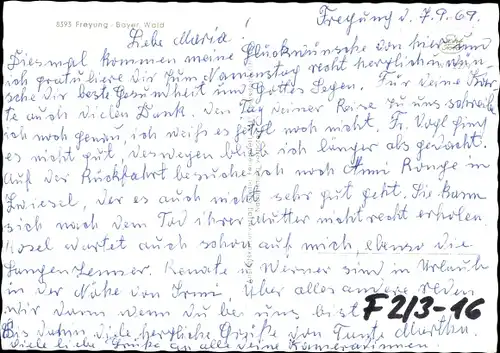 8393 Freyung - Bayer. Wald
Freyung d. 7.9.69.
Liebe Maria!
Diesmal kommen meine Glückwünsche von hier und
ich gratuliere Dir zum Namenstag recht herzlich wün
sche Dir beste Gesundheit und Gottes Segen. Für Deine Kar
te auch vielen Dank. Den Tag Deiner Reise zu uns schreib
ich noch genau, ich weiß es jetzt noch nicht. Fr. Vogl ging
es nicht gut, deswegen bleib ich länger als gedacht.
Auf der Rückfahrt besuche ich noch Anni in
Zwiesel, der es auch nicht sehr gut geht. Sie kann
sich nach dem Tod ihrer Mutter nicht recht erholen
Rosel wartet auch schon auf mich, ebenso die
Renate u. Werner sind in Urlaub
in der Nähe von Irmi. Über alles andere reden
wir dann wenn du bei uns bist
Bis dahin viele herzliche Grüße von Tante Martha
Viele liebe Grüße an alle Deine
F 2/3-16